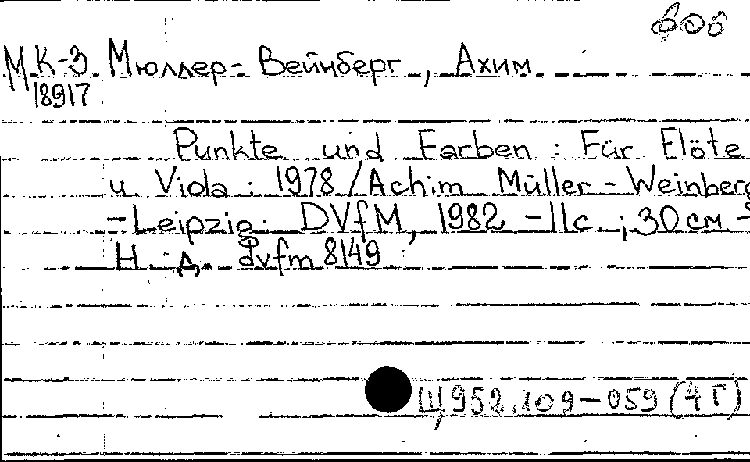 606
МК-3 Мюллер-Вейнберг, Ахим
18917
Punkte und Farben : Für Flöte
u. Viola : 1978 / Achim Müller-Weinberg
-Leipzig: DVfM, 1982 -11с. ; 30 см -
Н. д. dvfm 8149
Щ952.109-059 (4 Г)